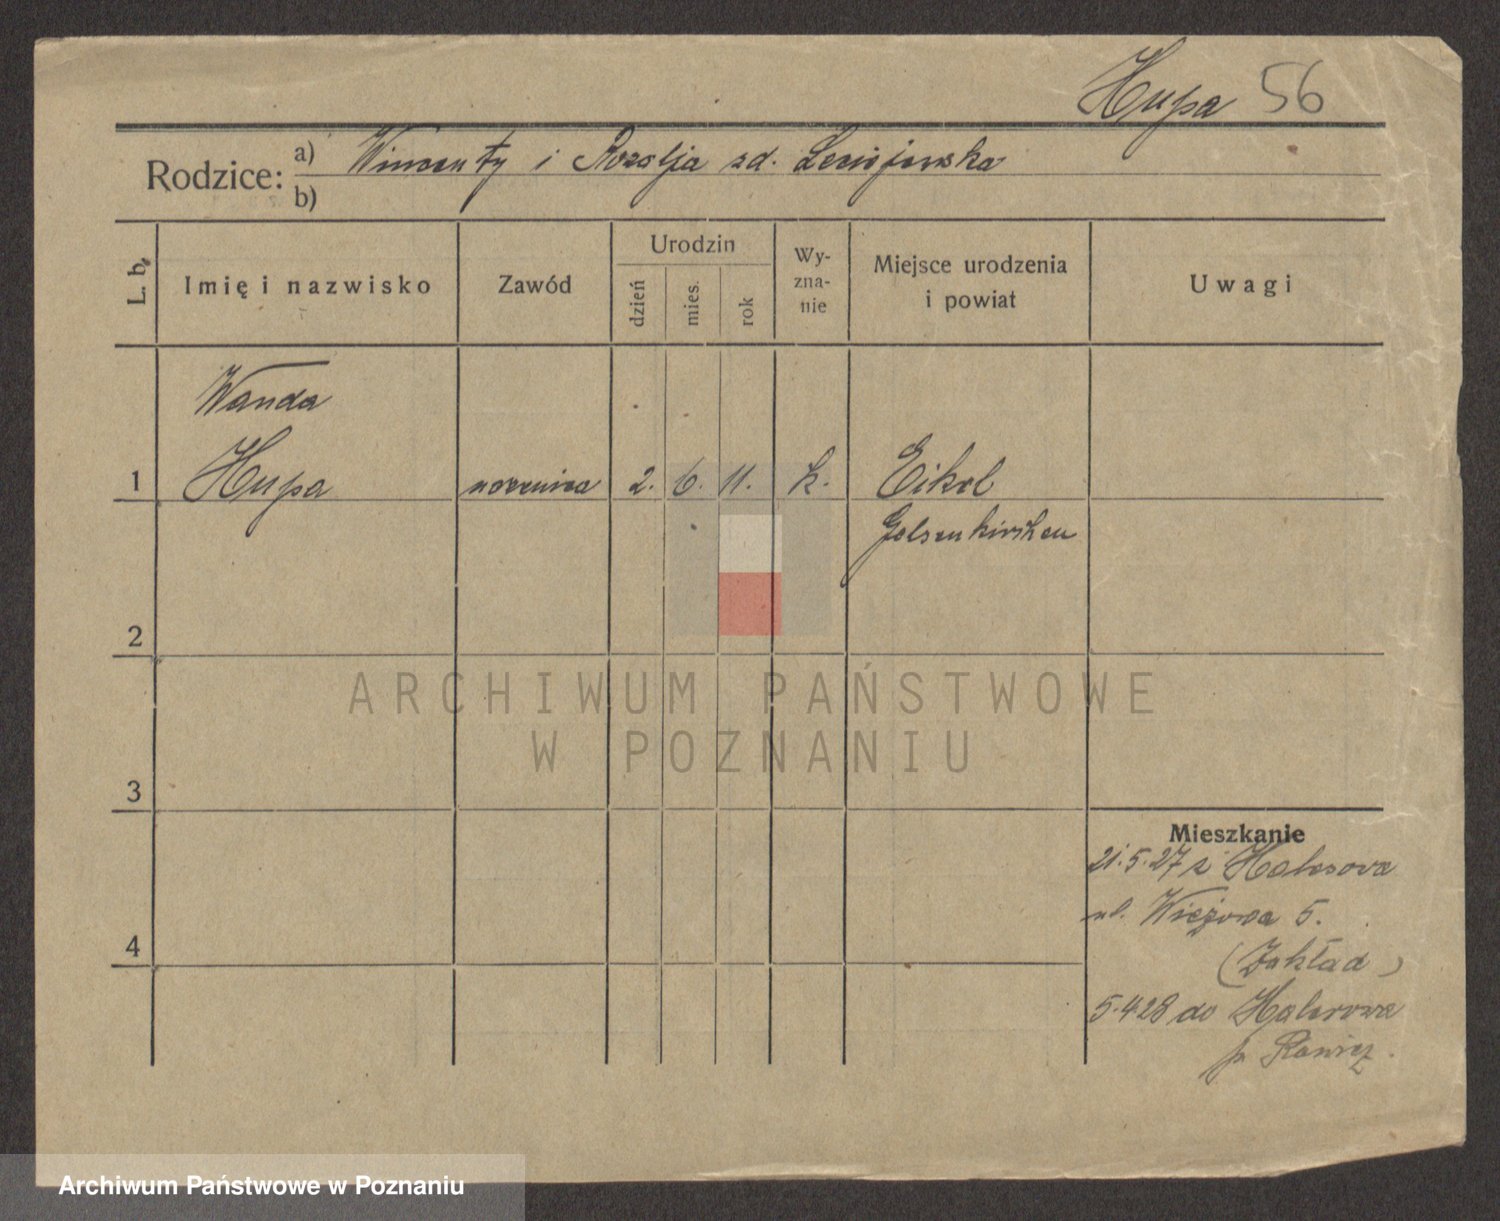 Hupa 56
Rodzice: a) Wincenty i Rozalja zd.
b)
L. b. Imię i nazwisko Zawód Urodzin dzień mies. rok Wy-zna-nie Miejsce urodzenia i powiat Uwagi
Wanda
1 Hupa uczenica 2. 6. 11. k. Eikel
Gelsenkirchen
2
ARCHIWUM PAŃSTWOWE
W POZNANIU
3
Mieszkanie
21.5.27 z
ul. Wieżowa 5.
4 (Zakład)
5.4.28 do
p. Rawicz.
Archiwum Państwowe w Poznaniu